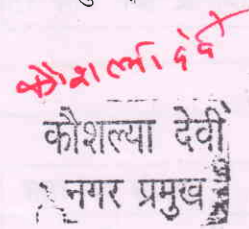 कौशल्या देवी
कौशल्या देवी
नगर प्रमुख